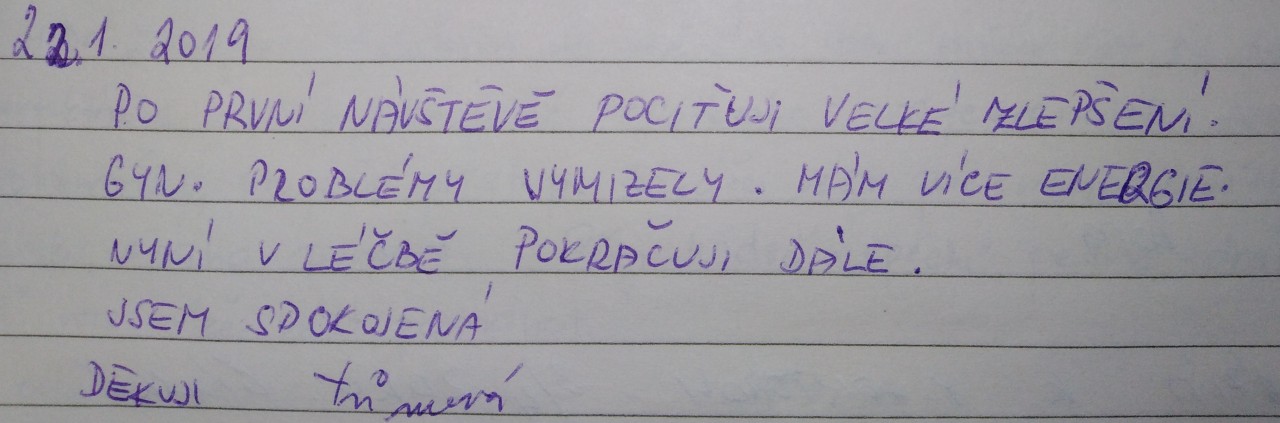 22.1. 2019
PO PRVNÍ NÁVŠTĚVĚ POCIŤUJI VELKÉ ZLEPŠENÍ.
GYN. PROBLÉMY VYMIZELY. MÁM VÍCE ENERGIE.
NYNÍ V LÉČBĚ POKRAČUJI DÁLE.
JSEM SPOKOJENÁ
DĚKUJI